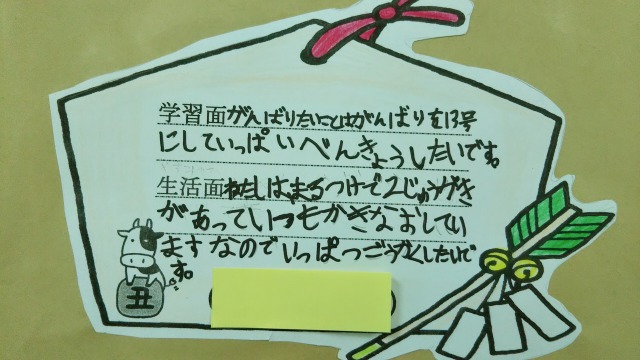 学習面がんばりたいことはがんばりを13号
にしていっぱいべんきょうしたいです。
生活面わたしは、まるつけで2じゅうがき
があっていつもかきなおしてい
ますなのでいっぱつごうかくしたいで
す。
丑